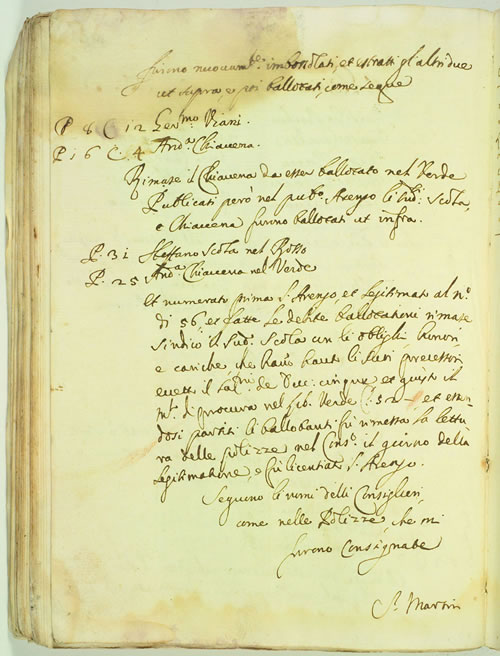 furono nuovam:te imbossolati, et estratti gl'altri due
ut supra e poi ballotati, come segue
P 8 C 12 Ger:mo Viani.
P. 16 C. 4 And:a Chiavena.
Rimase il Chiavena da esser ballotato nel Verde
Publicati però nel pub:o Arengo li sud:i Scola,
e Chiavena furono ballotati ut infra.
P. 31 Steffano Scola nel Rosso
P. 25 And:a Chiavena nel Verde
Et numerato prima l'Arengo et legitimato al n:o
di 56, et fatte le debite ballotationi rimase
Sindico il sud:o Scola con li oblighi honori,
e cariche che hanno hauti li suoi precessori
di Duc: cinque et
di procura nel lib: Verde C: 52 et essen
dosi partiti li ballotanti fu rimessa la lettu
ra delle polizze nel Cons:o il giorno della
legitimatione, e fu licentiato l'Arengo.
Seguono li nomi delli Consiglieri,
come nelle Polizze, che mi
furono Consignate
S. Martin